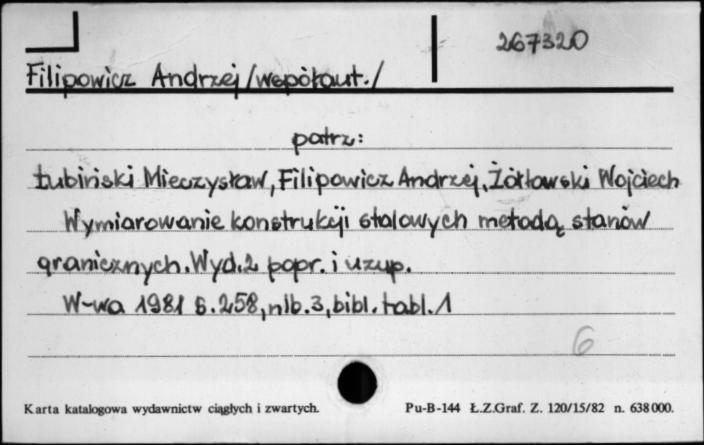 267320
Filipowicz Andrzej /współaut./
patrz:
Łubiński Mieczysław, Filipowicz Andrzej, Żółtowski Wojciech
Wymiarowanie konstrukcji stalowych metodą stanów
granicznych. Wyd. 2 popr. i uzup.
W-wa 1981 s. 258, nlb. 3, bibl. tabl. 1
6
Karta katalogowa wydawnictw ciągłych i zwartych. Pu-B-144 Ł.Z.Graf. Z. 120/15/82 n. 638 000.